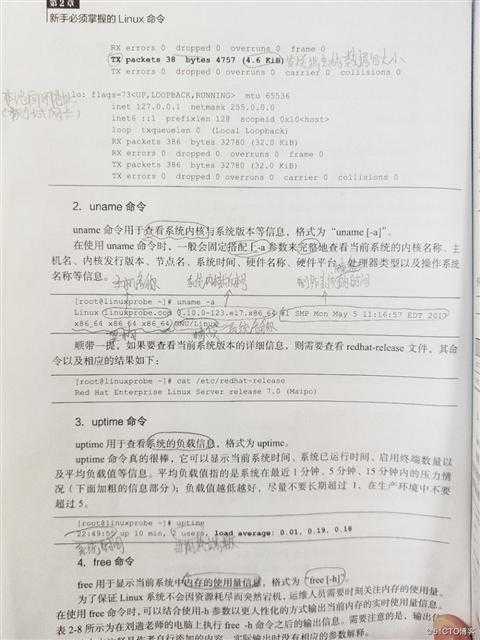 第2章
新手必须掌握的 Linux 命令
RX errors 0 dropped 0 overruns 0 frame 0
TX packets 38 bytes 4757 (4.6 KiB)
TX errors 0 dropped 0 overruns 0 carrier 0 collisions 0
lo: flags=73<UP,LOOPBACK,RUNNING> mtu 65536
inet 127.0.0.1 netmask 255.0.0.0
inet6 ::1 prefixlen 128 scopeid 0x10<host>
loop txqueuelen 0 (Local Loopback)
RX packets 386 bytes 32780 (32.0 KiB)
RX errors 0 dropped 0 overruns 0 frame 0
TX packets 386 bytes 32780 (32.0 KiB)
TX errors 0 dropped 0 overruns 0 carrier 0 collisions 0
2．uname 命令
uname 命令用于查看系统内核与系统版本等信息，格式为“uname [-a]”。
在使用 uname 命令时，一般会固定搭配上-a 参数来完整地查看当前系统的内核名称、主
机名、内核发行版本、节点名、系统时间、硬件名称、硬件平台、处理器类型以及操作系统
名称等信息。
[root@linuxprobe ~]# uname -a
Linux linuxprobe.com 3.10.0-123.el7.x86_64 #1 SMP Mon May 5 11:16:57 EDT 2017
x86_64 x86_64 x86_64 GNU/Linux
顺带一提，如果要查看当前系统版本的详细信息，则需要查看 redhat-release 文件，其命
令以及相应的结果如下：
[root@linuxprobe ~]# cat /etc/redhat-release
Red Hat Enterprise Linux Server release 7.0 (Maipo)
3．uptime 命令
uptime 用于查看系统的负载信息，格式为 uptime。
uptime 命令真的很棒，它可以显示当前系统时间、系统已运行时间、启用终端数量以
及平均负载值等信息。平均负载值指的是系统在最近 1 分钟、5 分钟、15 分钟内的压力情
况（下面加粗的信息部分）；负载值越低越好，尽量不要长期超过 1，在生产环境中不要
超过 5。
[root@linuxprobe ~]# uptime
22:49:55 up 10 min, 2 users, load average: 0.01, 0.19, 0.18
4．free 命令
free 用于显示当前系统中内存的使用量信息，格式为“free [-h]”。
为了保证 Linux 系统不会因资源耗尽而突然宕机，运维人员需要时刻关注内存的使用量。
在使用 free 命令时，可以结合使用-h 参数以更人性化的方式输出当前内存的实时使用量信息。
表 2-8 所示为在刘遄老师的电脑上执行 free -h 命令之后的输出信息。需要注意的是，输出信
@51CTO博客